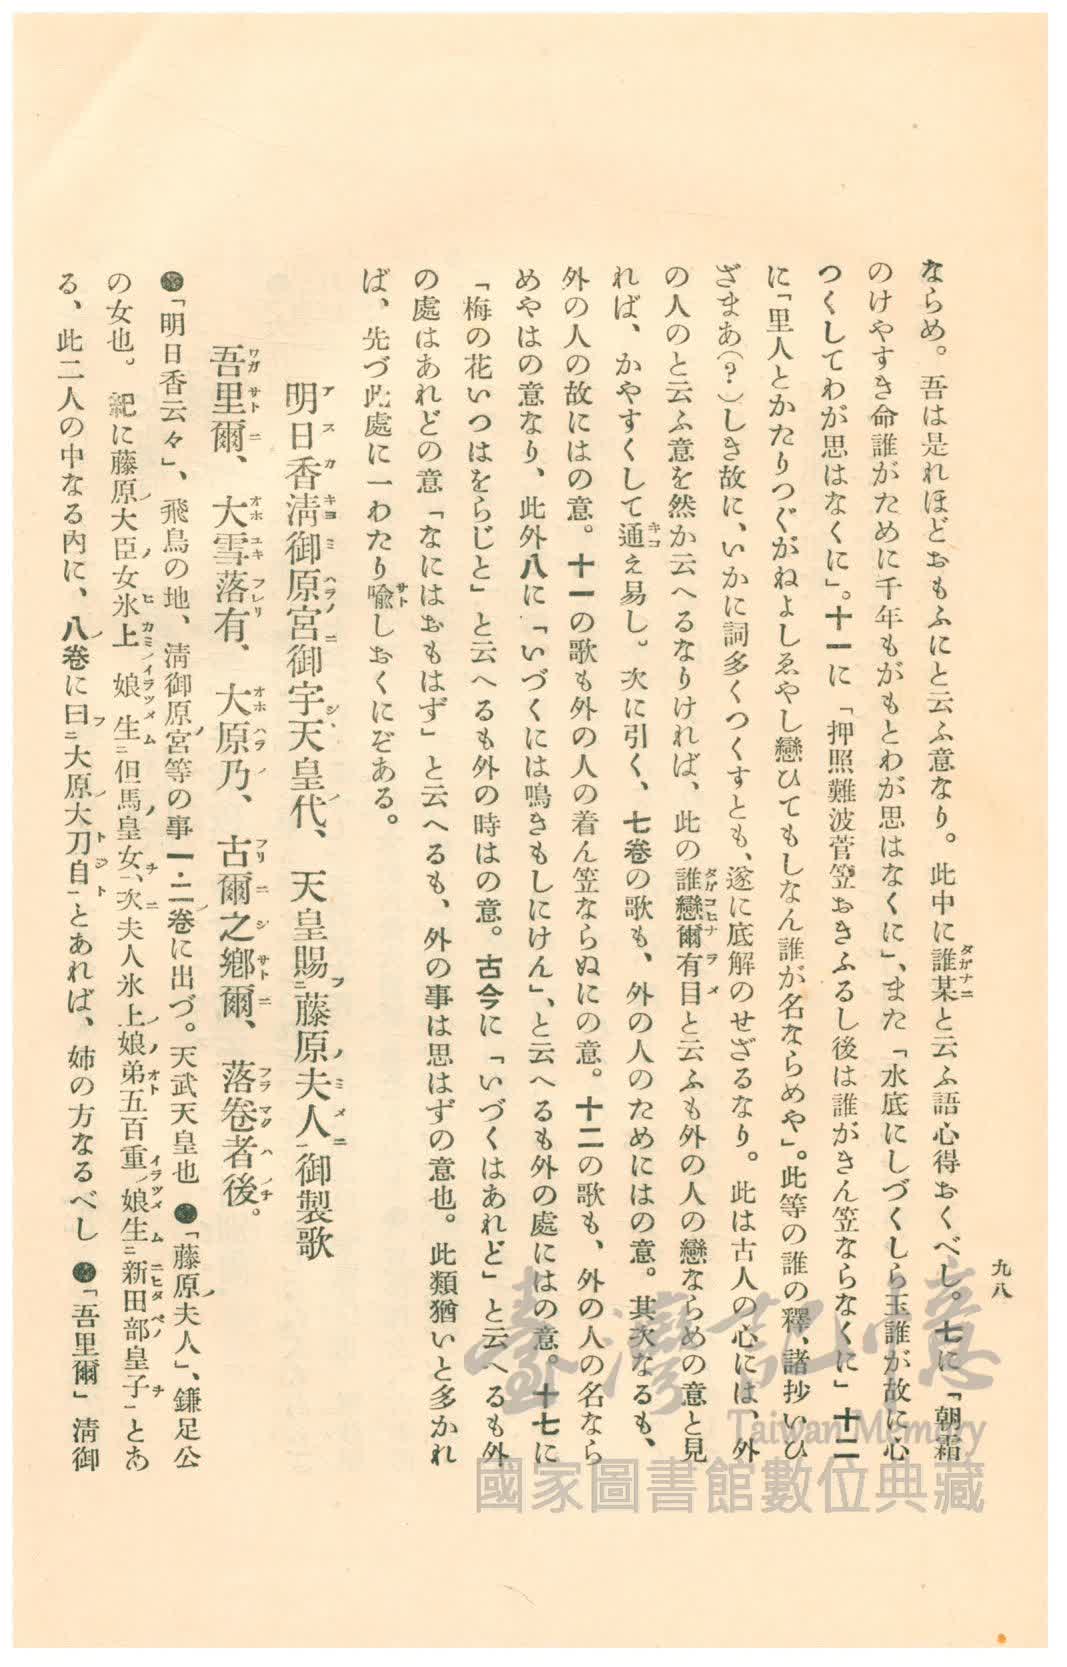 九八
ならめ。吾は是れほどおもふにと云ふ意なり。此中に誰某と云ふ語心得おくべし。七に「朝霜
のけやすき命誰がために千年もがもとわが思はなくに」、また「水底にしづくしら玉誰が故に心
つくしてわが思はなくに」。十一に「押照難波菅笠おきふるし後は誰がきん笠ならなくに」十二
に「里人とかたりつぐがねよしゑやし戀ひてもしなん誰が名ならめや」。此等の誰の釋、諸抄いひ
ざまあ(?)しき故に、いかに詞多くつくすとも、遂に底解のせざるなり。此は古人の心には、外
の人のと云ふ意を然か云へるなりければ、此の誰戀爾有目と云ふも外の人の戀ならめの意と見
れば、かやすくして通え易し。次に引く、七卷の歌も、外の人のためにはの意。其次なるも、
外の人の故にはの意。十一の歌も外の人の着ん笠ならぬにの意。十二の歌も、外の人の名なら
めやはの意なり、此外八に「いづくには鳴きもしにけん」、と云へるも外の處にはの意。十七に
「梅の花いつはをらじと」と云へるも外の時はの意。古今に「いづくはあれど」と云へるも外
の處はあれどの意「なにはおもはず」と云へるも、外の事は思はずの意也。此類猶いと多かれ
ば、先づ此處に一わたり喩しおくにぞある。
明日香淸御原宮御宇天皇代、天皇賜藤原夫人御製歌
吾里爾、大雪落有、大原乃、古爾之鄕爾、落卷者後。
●「明日香云々」、飛鳥の地、淸御原宮等の事一・二卷に出づ。天武天皇也 ●「藤原夫人」、鎌足公
の女也。紀に藤原大臣女氷上娘生但馬皇女、次夫人氷上娘弟五百重娘生新田部皇子とあ
る、此二人の中なる內に、八卷に曰大原大刀自とあれば、姉の方なるべし ●「吾里爾」淸御
臺灣記憶
Taiwan Memory
國家圖書館數位典藏